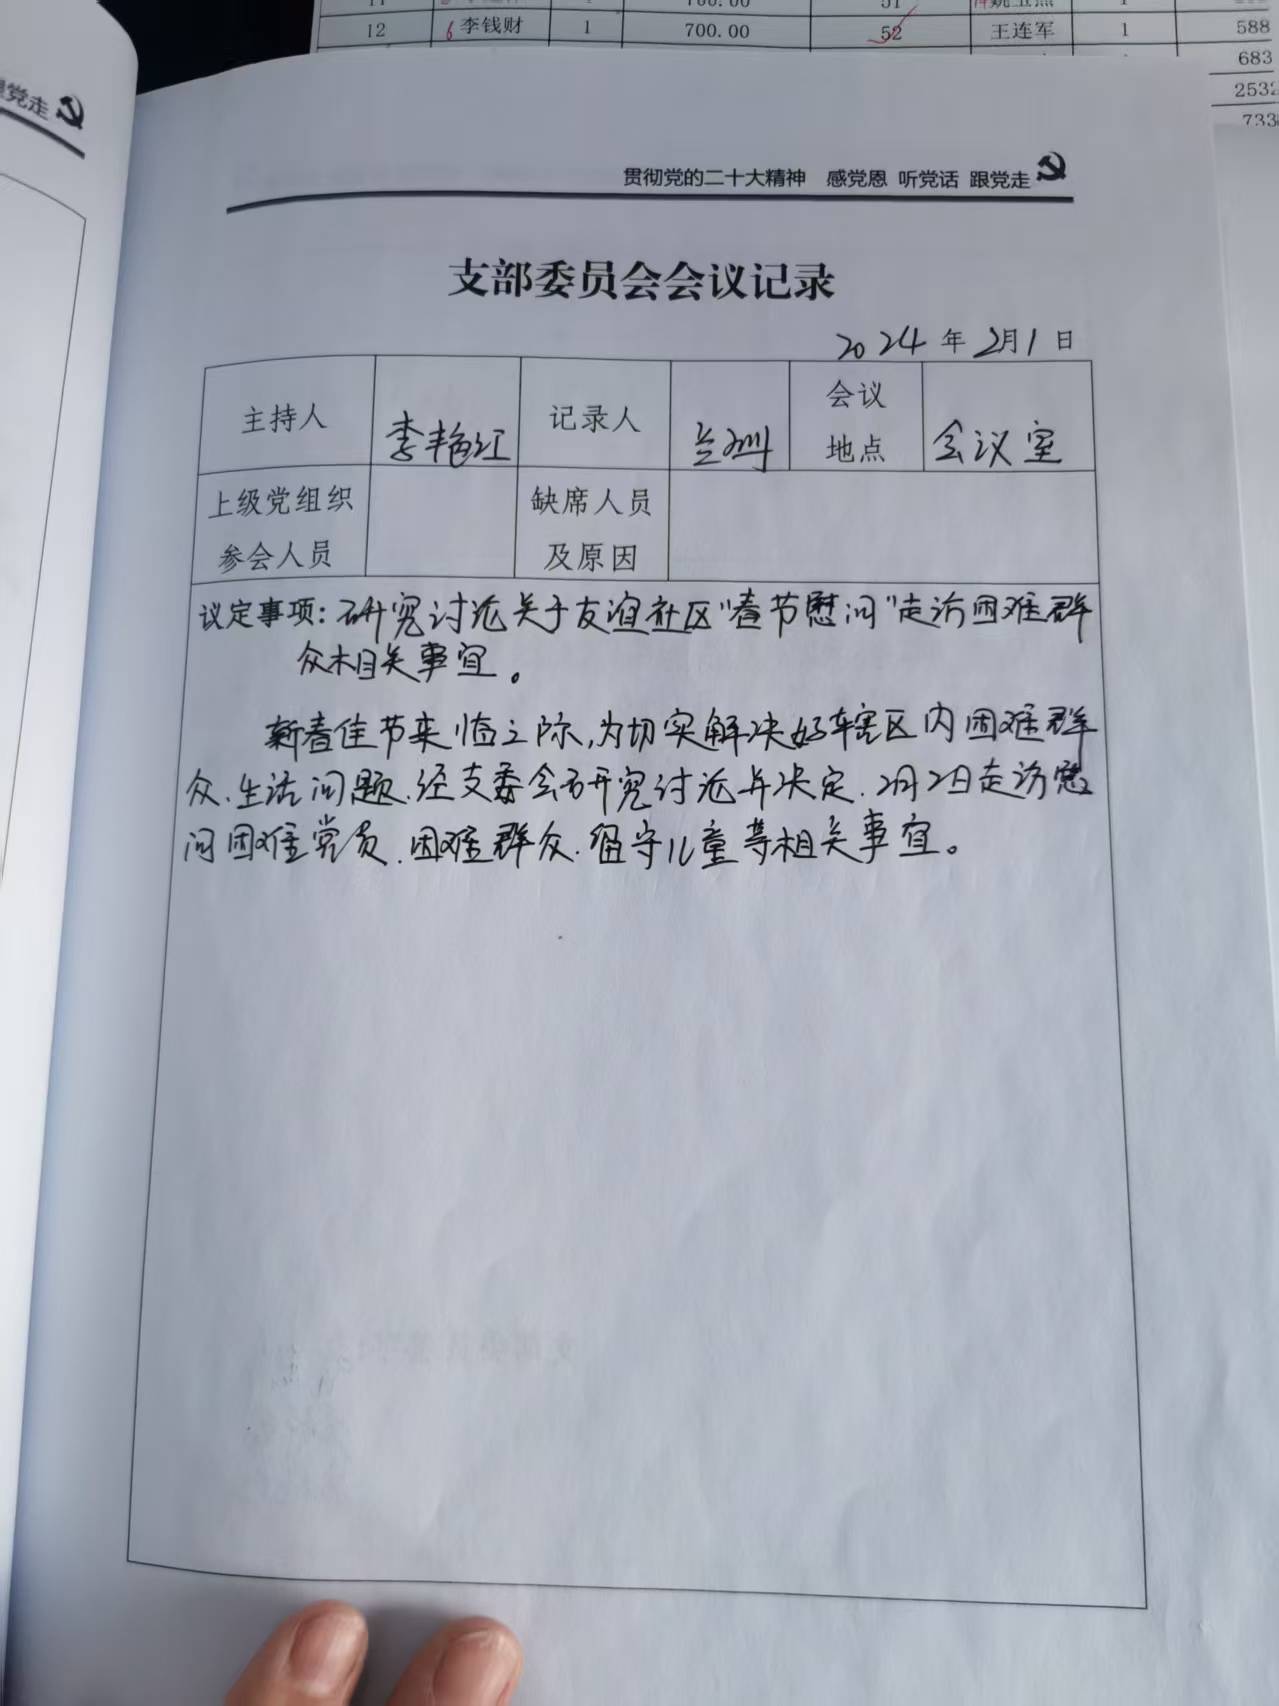 12 6 李钱财 1 700.00 52 王连军 1 588
683
2532
733
党走
贯彻党的二十大精神 感党恩 听党话 跟党走
支部委员会会议记录
2024年2月1日
主持人 李艳红 记录人 会议地点 会议室
上级党组织参会人员 缺席人员及原因
议定事项:研究讨论关于友谊社区"春节慰问"走访困难群
众相关事宜。
新春佳节来临之际,为切实解决好辖区内困难群
众.生活问题.经支委会研究讨论并决定.2月2日走访慰
问困难党员.困难群众.留守儿童等相关事宜。